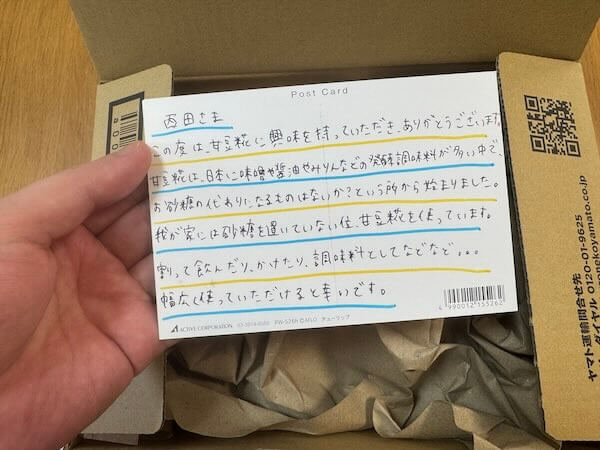 Post Card
西田さま
この度は、甘豆糀に興味を持っていただき、ありがとうございます。
甘豆糀は、日本に味噌や醤油やみりんなどの発酵調味料が多い中で、
お砂糖の代わりになるものはないか?という所から始まりました。
我が家には砂糖を置いていない位、甘豆糀を使っています。
割って飲んだり、かけたり、調味料としてなどなど...
幅広く使っていただけると幸いです。
4 990012 155262
ACTIVE CORPORATION 03-3814-8580 PW-526R ©AFLO チューリップ
ヤマト運輸問合せ先
ダイヤル 0120-01-9625
nekoyamato.co.jp